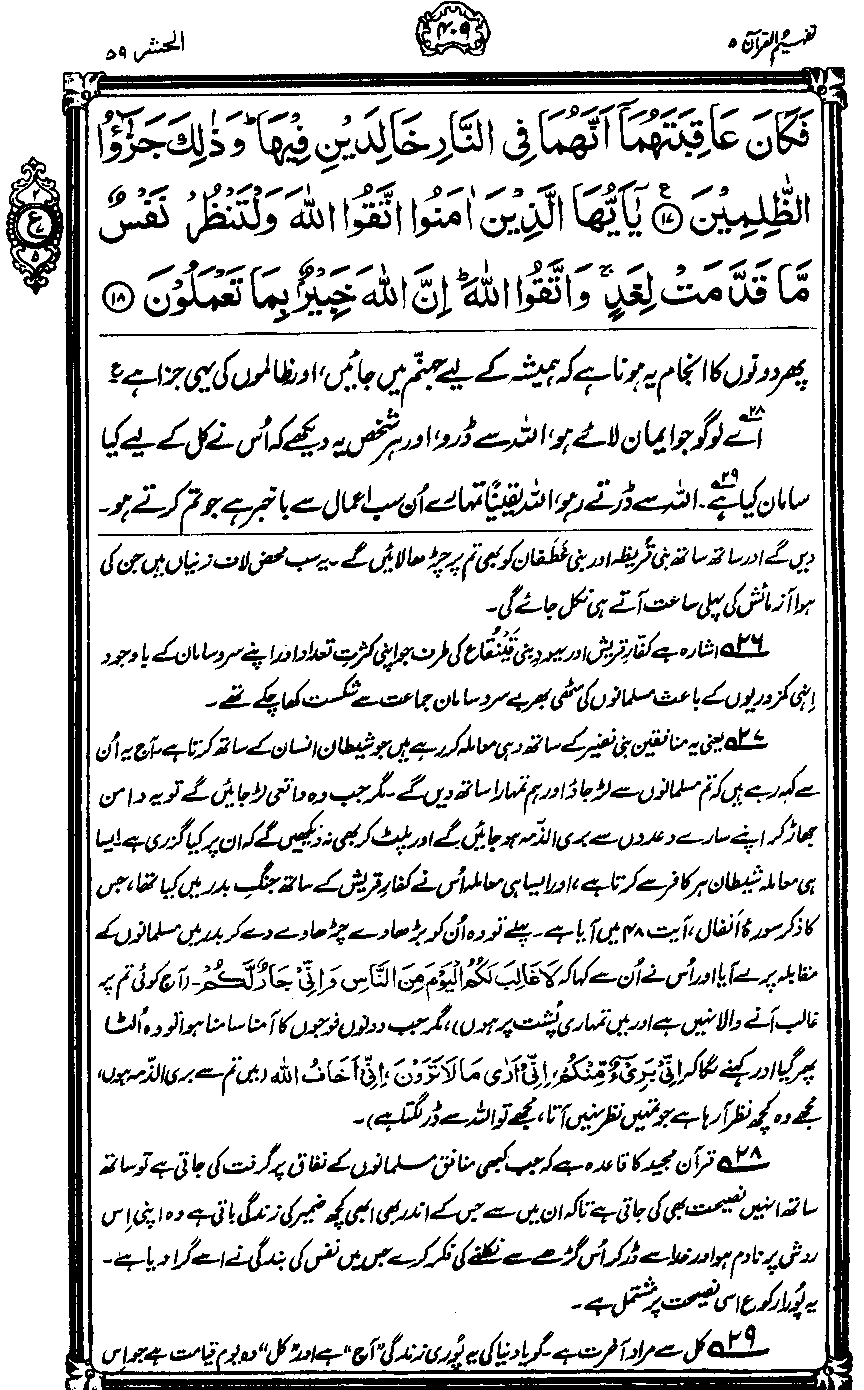 تفہیم القرآن ۵
۴۰۹
الحشر ۵۹
فَكَانَ عَاقِبَتَهُمَآ اَنَّهُمَا فِی النَّارِ خَالِدَيْنِ فِيْهَا ؕ وَذٰلِكَ جَزٰٓؤُا
الظّٰلِمِيْنَ ﴿۱۷﴾ ع يٰۤاَيُّهَا الَّذِيْنَ اٰمَنُوا اتَّقُوا اللّٰهَ وَلْتَنْظُرْ نَفْسٌ
مَّا قَدَّمَتْ لِغَدٍ ۚ وَاتَّقُوا اللّٰهَ ؕ اِنَّ اللّٰهَ خَبِيْرٌۢ بِمَا تَعْمَلُوْنَ ﴿۱۸﴾
۲
ع
۷
۵
پھر دونوں کا انجام یہ ہونا ہے کہ ہمیشہ کے لیے جہنّم میں جائیں، اور ظالموں کی یہی جزا ہے ؏
اَے لوگو جو ایمان لائے ہو، اللہ سے ڈرو، اور ہر شخص یہ دیکھے کہ اُس نے کل کے لیے کیا ۲۸
سامان کیا ہے ۲۹۔ اللہ سے ڈرتے رہو، اللہ یقیناً تمہارے اُن سب اعمال سے باخبر ہے جو تم کرتے ہو۔
دیں گے اور ساتھ ساتھ بنی قُریظہ اور بنی غَطَفان کو بھی تم پر چڑھا لائیں گے۔ یہ سب محض لاف زنیاں ہیں جن کی
ہوا آزمائش کی پہلی ساعت آتے ہی نکل جائے گی۔
۲۶ اشارہ ہے کفارِ قریش اور یہود بنی قَینُقاع کی طرف جو اپنی کثرتِ تعداد اور اپنے سروسامان کے باوجود
اِنہی کمزوریوں کے باعث مسلمانوں کی مٹھی بھر بے سروسامان جماعت سے شکست کھا چکے تھے۔
۲۷ یعنی یہ منافقین بنی نضیر کے ساتھ وہی معاملہ کر رہے ہیں جو شیطان انسان کے ساتھ کرتا ہے۔ آج یہ اُن
سے کہہ رہے ہیں کہ تم مسلمانوں سے لڑ جاؤ اور ہم تمہارا ساتھ دیں گے۔ مگر جب وہ واقعی لڑ جائیں گے تو یہ دامن
جھاڑ کر اپنے سارے وعدوں سے بری الذّمہ ہو جائیں گے اور پلٹ کر بھی نہ دیکھیں گے کہ ان پر کیا گزری ہے۔ ایسا
ہی معاملہ شیطان ہر کافر سے کرتا ہے، اور ایسا ہی معاملہ اُس نے کفارِ قریش کے ساتھ جنگِ بدر میں کیا تھا، جس
کا ذکر سورۂ اَنفال، آیت ۴۸ میں آیا ہے۔ پہلے تو وہ اُن کو بڑھاوے چڑھاوے دے کر بدر میں مسلمانوں کے
مقابلہ پر لے آیا اور اُس نے اُن سے کہا کہ لَا غَالِبَ لَكُمُ الْيَوْمَ مِنَ النَّاسِ وَاِنِّیْ جَارٌ لَّكُمْ۔ (آج کوئی تم پر
غالب آنے والا نہیں ہے اور میں تمہاری پُشت پر ہوں)، مگر جب دونوں فوجوں کا آمنا سامنا ہوا تو وہ اُلٹا
پھر گیا اور کہنے لگا کہ اِنِّیْ بَرِیْٓءٌ مِّنْكُمْ، اِنِّیْٓ اَرٰی مَا لَا تَرَوْنَ، اِنِّیْٓ اَخَافُ اللّٰهَ (میں تم سے بری الذمہ ہوں،
مجھے وہ کچھ نظر آ رہا ہے جو تمہیں نظر نہیں آتا، مجھے تو اللہ سے ڈر لگتا ہے)۔
۲۸ قرآن مجید کا قاعدہ ہے کہ جب کبھی منافق مسلمانوں کے نفاق پر گرفت کی جاتی ہے تو ساتھ
ساتھ انہیں نصیحت بھی کی جاتی ہے تاکہ ان میں سے جس کے اندر بھی ابھی کچھ ضمیر کی زندگی باقی ہے وہ اپنی اِس
روش پر نادم ہو اور خدا سے ڈر کر اُس گڑھے سے نکلنے کی فکر کرے جس میں نفس کی بندگی نے اسے گرا دیا ہے۔
یہ پُورا رکوع اسی نصیحت پر مشتمل ہے۔
۲۹ کل سے مراد آخرت ہے۔ گویا دنیا کی یہ پُوری زندگی ”آج“ ہے اور ”کل“ وہ یومِ قیامت ہے جو اِس